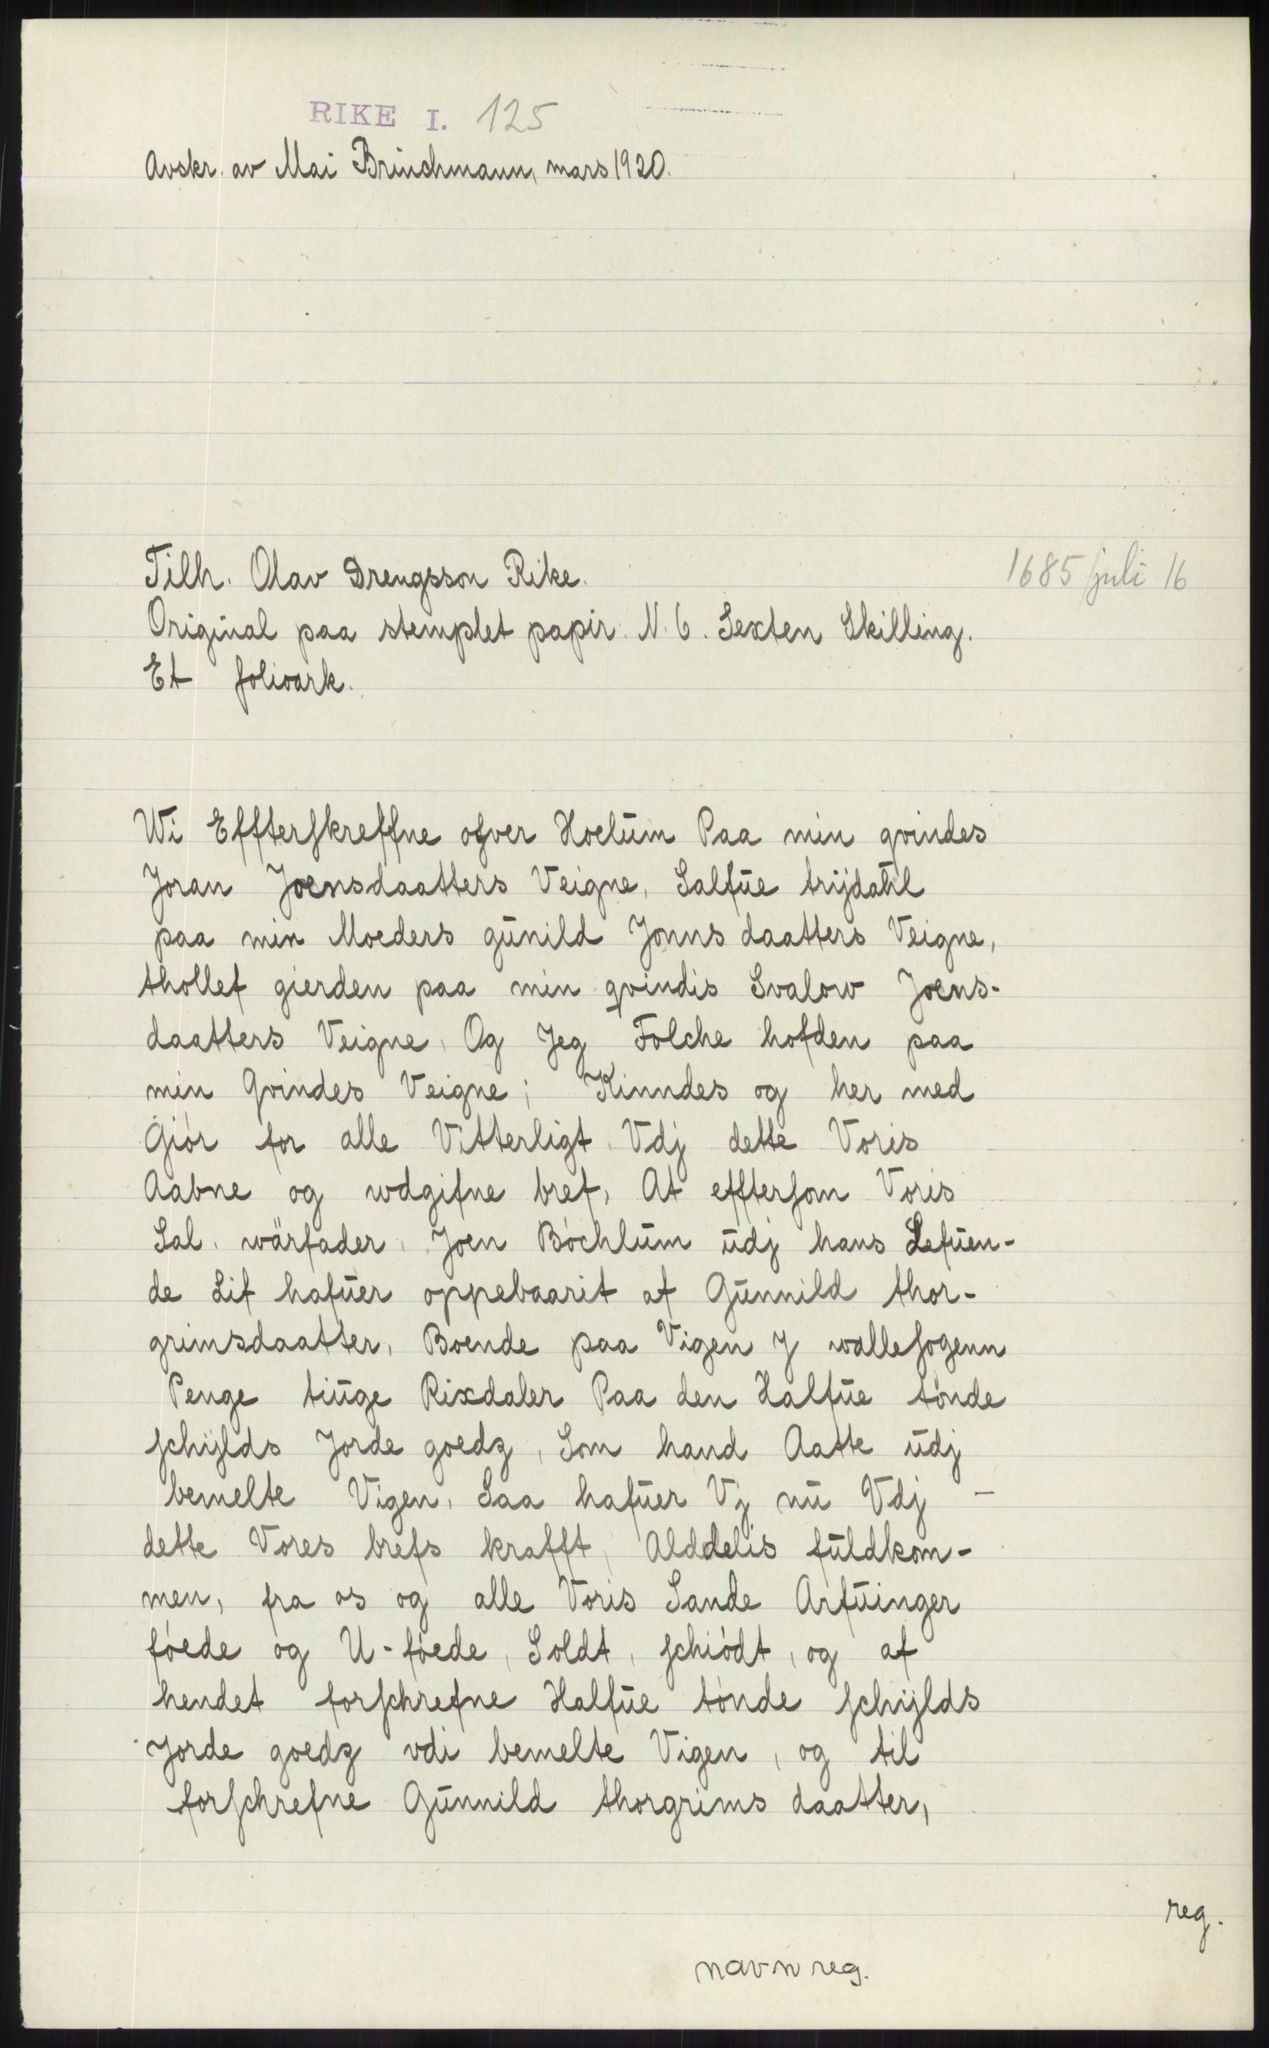 RIKE I. 125
Avskr. av Mai Brinchmann, mars 1920.
Tilh. Olav Drengsson Rike.
1685 juli 16
Original paa stemplet papir. N. 6. Sexten Skilling.
Et folioark.
Wi Effterskreffne ofver Hoelüm Paa min qvindes
Joran Joensdaatters Veigne, Salfüe trijdahl
paa min Moeders günild Jonns daatters Veigne,
thollef gierden paa min qvindis Svalow Joens-
daatters Veigne, Og Jeg Folche hofden paa
min Qvindes Veigne; Kinndes og her med
Giór for alle Vitterligt Vdj dette Voris
Aabne og wdgifne bref, At efftersom Voris
Sal. wärfader, Joen Bóchlüm üdj hans Lefüen-
de Lif hafüer oppebaarit af Günnild thor-
grimsdaatter, Boende paa Vigen J wallesogenn
Penge tiüge Rixdaler Paa den Halfüe tónde
schijlds Jorde goedz, Som hand Aatte üdj
bemelte Vigen, Saa hafüer Vj nü Vdj -
dette Vores brefs krafft, Alddelis füldkom-
men, fra os og alle Voris Sande Arfüinger
fóede og U-fóede, Soldt, schiódt, og af
hendet forschrefne Halfüe tónde schijlds
Jorde goedz vdi bemelte Vigen, og til
forschrefne Günnild thorgrims daatter,
reg.
navn reg.